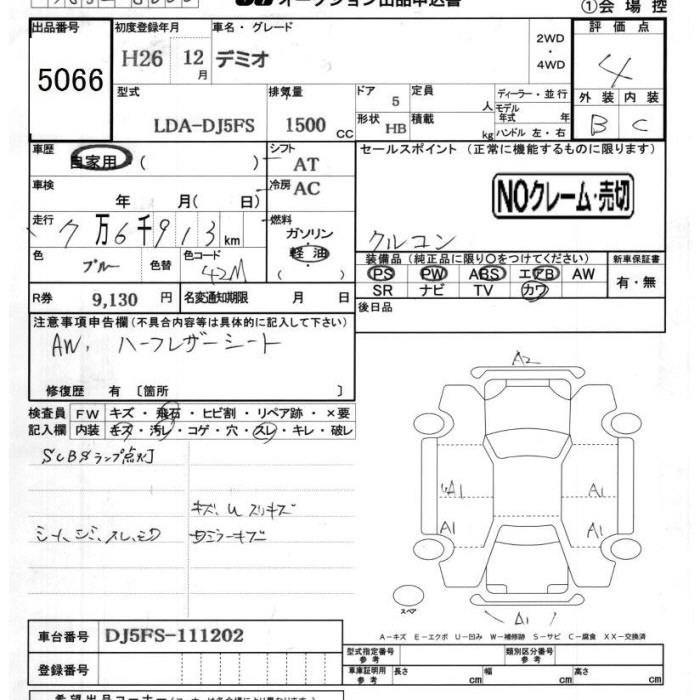 オークション出品申込書
①会場控
出品番号
5066
初度登録年月
H26 12月
車名・グレード
デミオ
2WD
・
4WD
評価点
4
外装 内装
B C
型式
LDA-DJ5FS
排気量
1500 CC
ドア 5
定員 人
ディーラー・並行
モデル年式 年
形状 HB
積載 kg
ハンドル 左・右
車歴
自家用・( )
シフト
AT
セールスポイント（正常に機能するものに限ります）
車検
年 月( 日)
冷房 AC
NOクレーム・売切
走行
7万6千913km
燃料
ガソリン
軽油
( )
クルコン
色
ブルー
色替
色コード
42M
装備品（純正品に限り○をつけてください）
新車保証書
PS PW ABS エアB AW
SR ナビ TV カワ
有・無
R券 9,130 円
名変通知期限 月 日
後日品
注意事項申告欄（不具合内容等は具体的に記入して下さい）
AW、ハーフレザーシート
修復歴 有 〔箇所 〕
検査員
記入欄
FW キズ・飛石・ヒビ割・リペア跡・×要
内装 キズ・汚レ・コゲ・穴・スレ・キレ・破レ
SCBSランプ点灯
キズ、U スリキズ
A2
A1
A1
A1
A1
A1
スペア
A－キズ E－エクボ U－凹み W－補修跡 S－サビ C－腐食 XX－交換済
車台番号 DJ5FS-111202
登録番号
型式指定番号
参考
類別区分番号
参考
車庫証明用
参考
長さ cm
幅 cm
高さ cm
希望出品コーナー